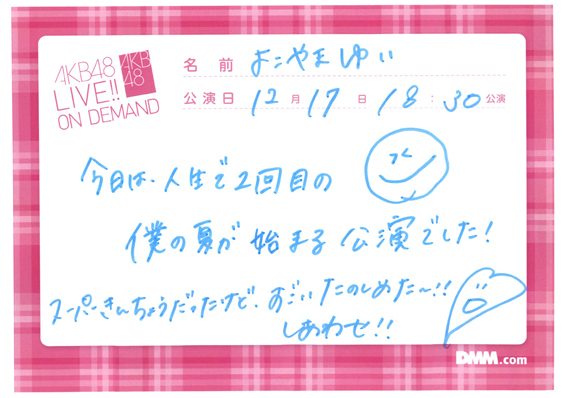 AKB48
LIVE!!
ON DEMAND
AKB
48
名前 よこやまゆい
公演日 12月17日 18:30公演
今日は、人生で2回目の
僕の夏が始まる公演でした!
スーパーきんちょうだったけど、すごいたのしめた〜!!
しあわせ!!
DMM.com